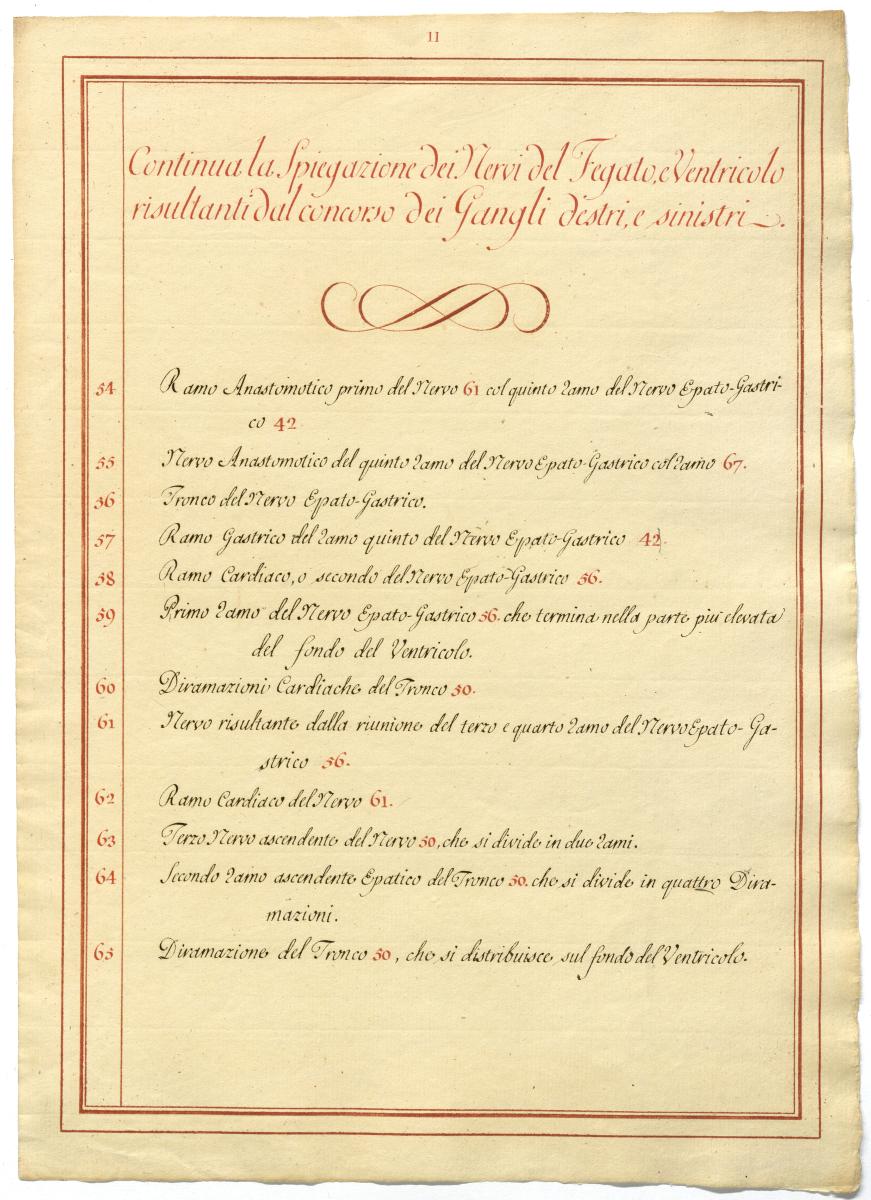 11
Continua la Spiegazione dei Nervi del Fegato, e Ventricolo
risultanti dal concorso dei Gangli destri, e sinistri.
54 Ramo Anastomotico primo del Nervo 61 col quinto ramo del Nervo Epato-Gastri-
co 42
55 Nervo Anastomotico del quinto ramo del Nervo Epato-Gastrico col ramo 67.
56 Tronco del Nervo Epato-Gastrico.
57 Ramo Gastrico del ramo quinto del Nervo Epato-Gastrico 42.
58 Ramo Cardiaco, o secondo del Nervo Epato-Gastrico 56.
59 Primo ramo del Nervo Epato-Gastrico 56. che termina nella parte più elevata
del fondo del Ventricolo.
60 Diramazioni Cardiache del Tronco 50.
61 Nervo risultante dalla riunione del terzo e quarto ramo del Nervo Epato-Ga-
strico 56.
62 Ramo Cardiaco del Nervo 61.
63 Terzo Nervo ascendente del Nervo 50, che si divide in due rami.
64 Secondo ramo ascendente Epatico del Tronco 50. che si divide in quattro Dira-
mazioni.
65 Diramazione del Tronco 50, che si distribuisce sul fondo del Ventricolo.